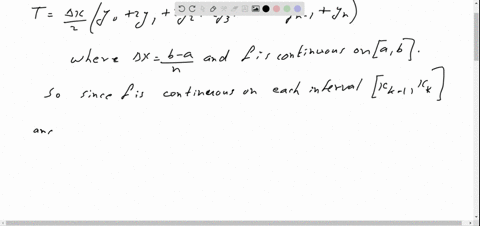 T = Δx/2 (y₀ + 2y₁ + y₂ y₃ yₙ₋₁ + yₙ)
where Δx = b-a/n and f is continuous on [a, b].
So since f is continuous on each interval [xₖ₋₁, xₖ]
anc